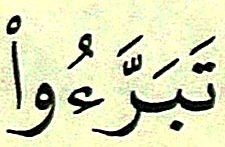 تَبَرَّءُواْ